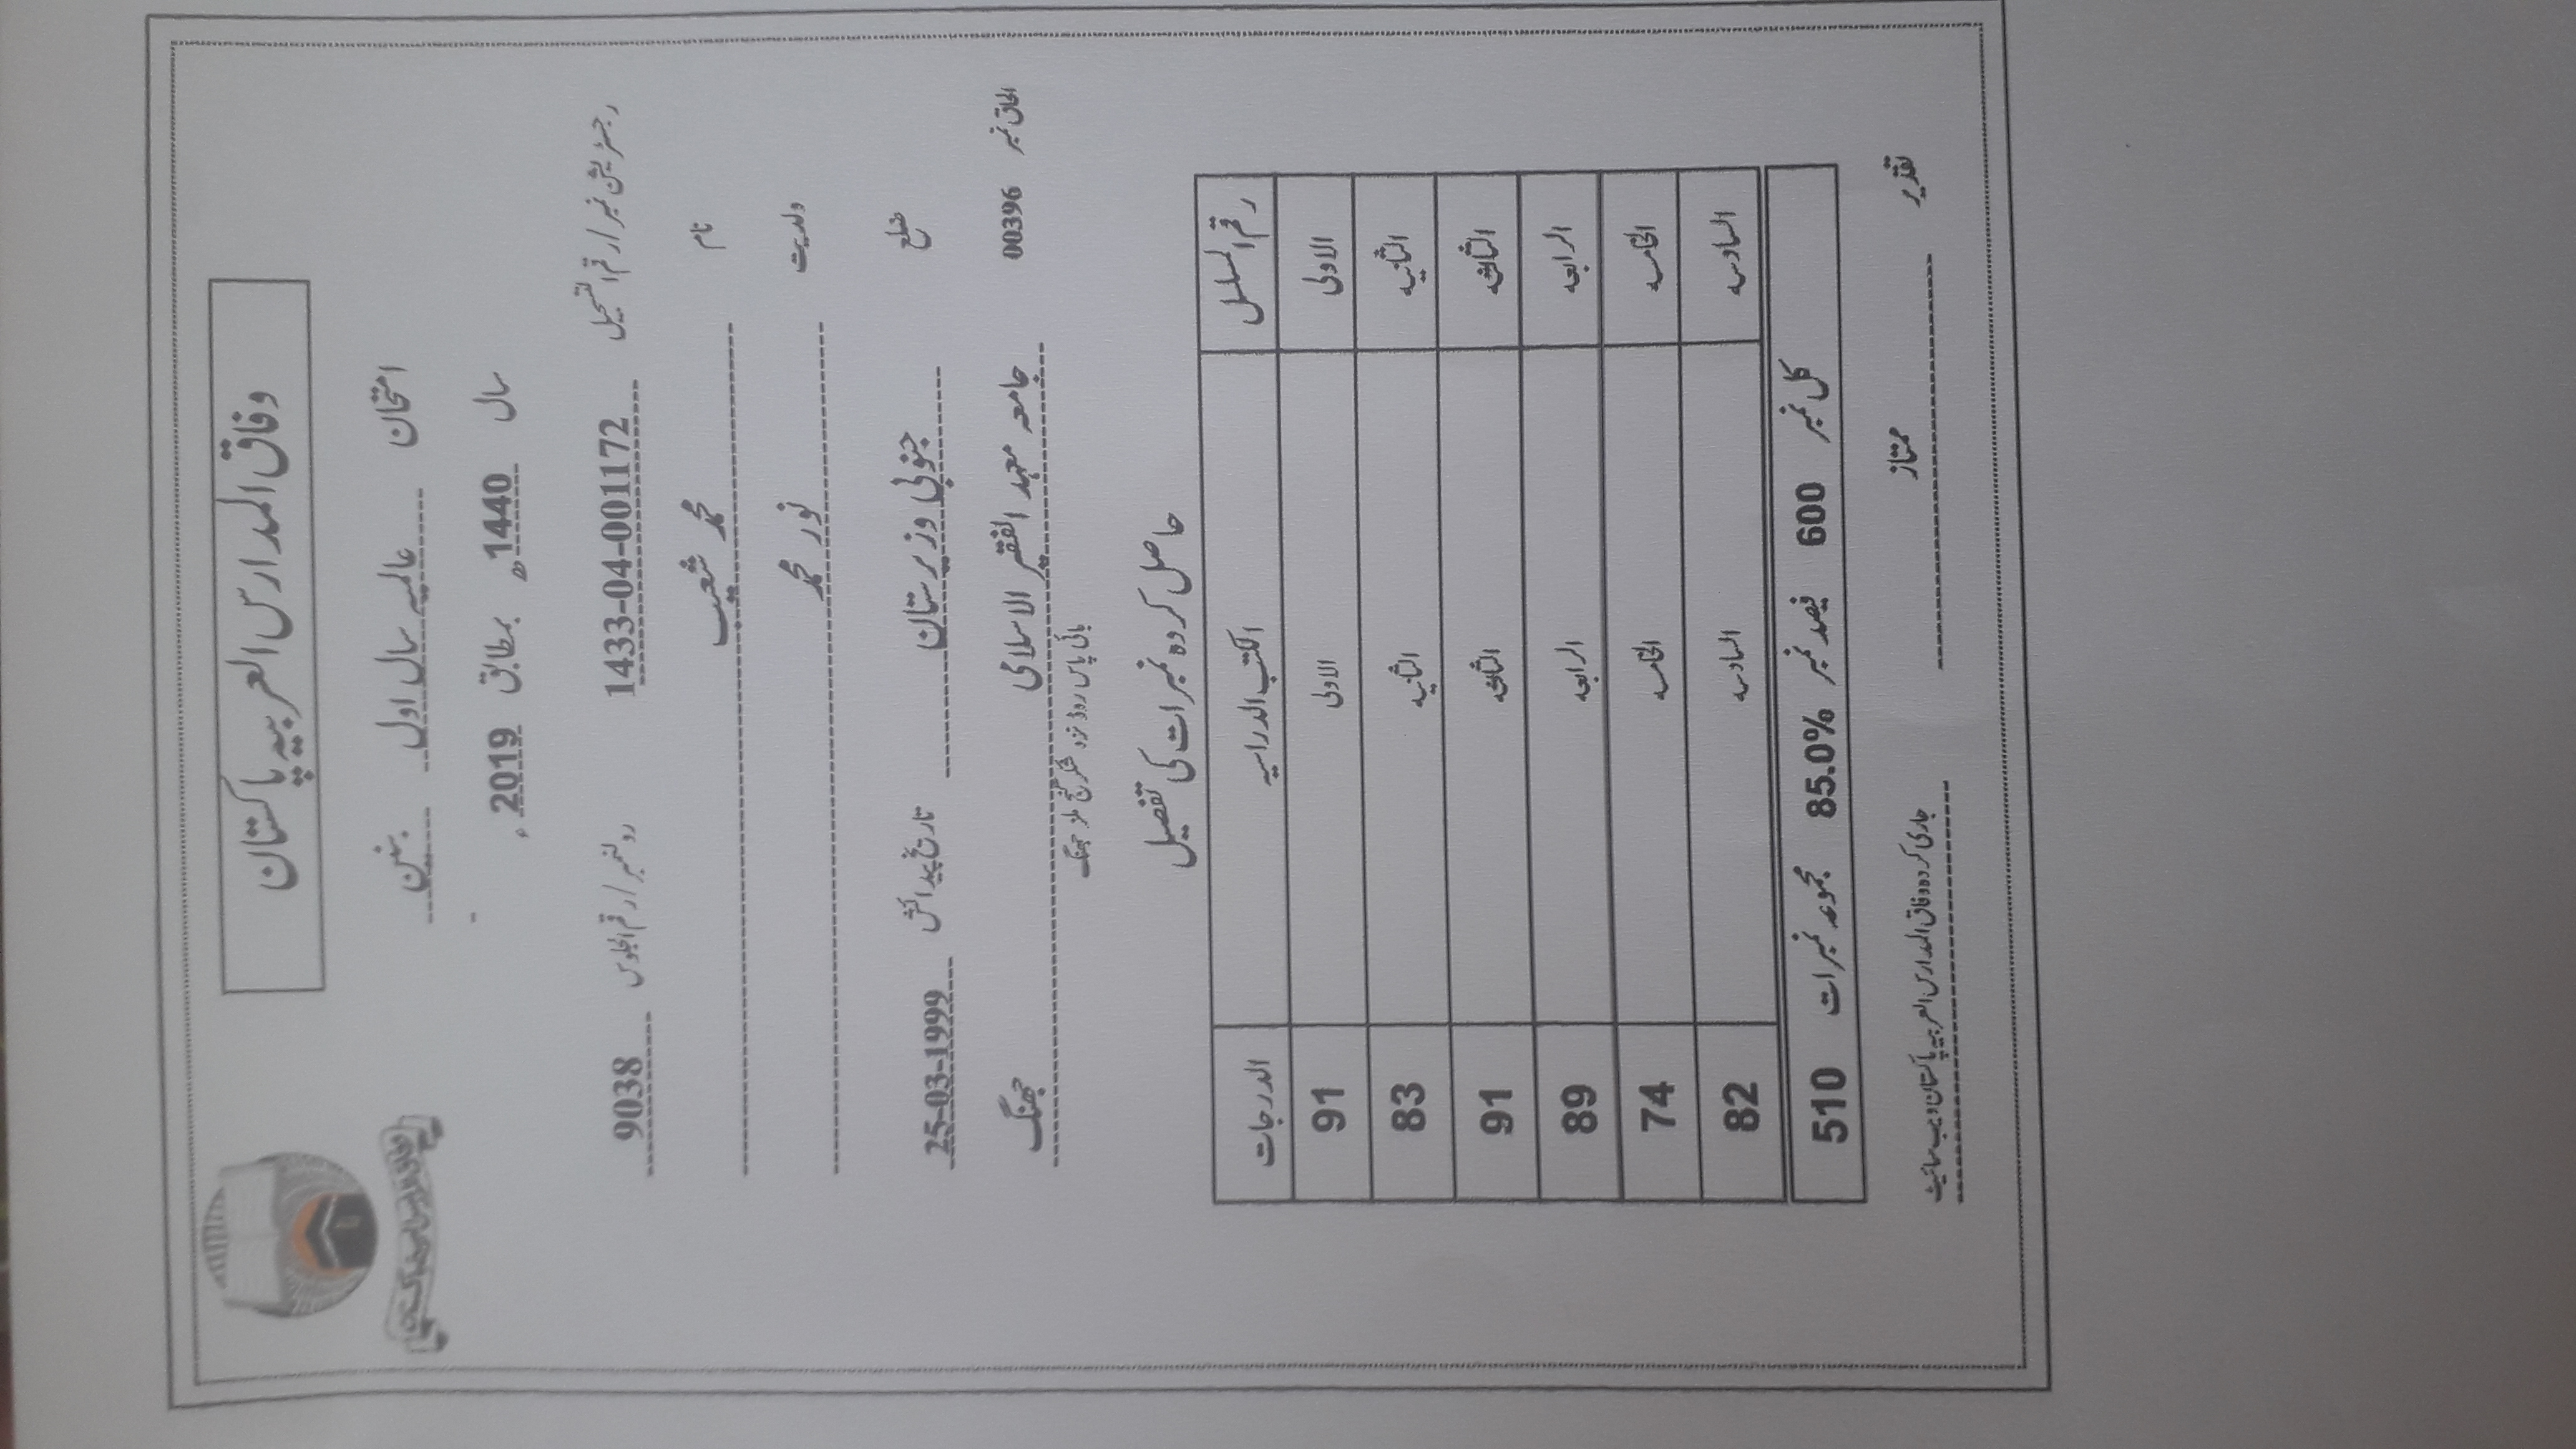 وفاق المدارس العربیہ پاکستان
امتحان عالمیہ سال اول بنین
سال 1440ھ بمطابق 2019ء
رجسٹریشن نمبر/رقم التسجیل 1433-04-001172 رولنمبر/رقم الجلوس 9038
نام محمد شعیب
ولدیت نور محمد
ضلع جنوبی وزیرستان تاریخ پیدائش 25-03-1999
الحاق نمبر 00396 جامعہ معہد الفقیر الاسلامی جھنگ
بائی پاس روڈ نزد شکر گنج ملز جھنگ
حاصل کردہ نمبرات کی تفصیل
رقم المسلسل الکتب الدراسیہ الدرجات
الاولی الاولی 91
الثانیہ الثانیہ 83
الثالثہ الثالثہ 91
الرابعہ الرابعہ 89
الخامسہ الخامسہ 74
السادسہ السادسہ 82
کل نمبر 600 فیصد نمبر 85.0% مجموعہ نمبرات 510
تقدیر ممتاز جاری کردہ وفاق المدارس العربیہ پاکستان ویب سائیٹ